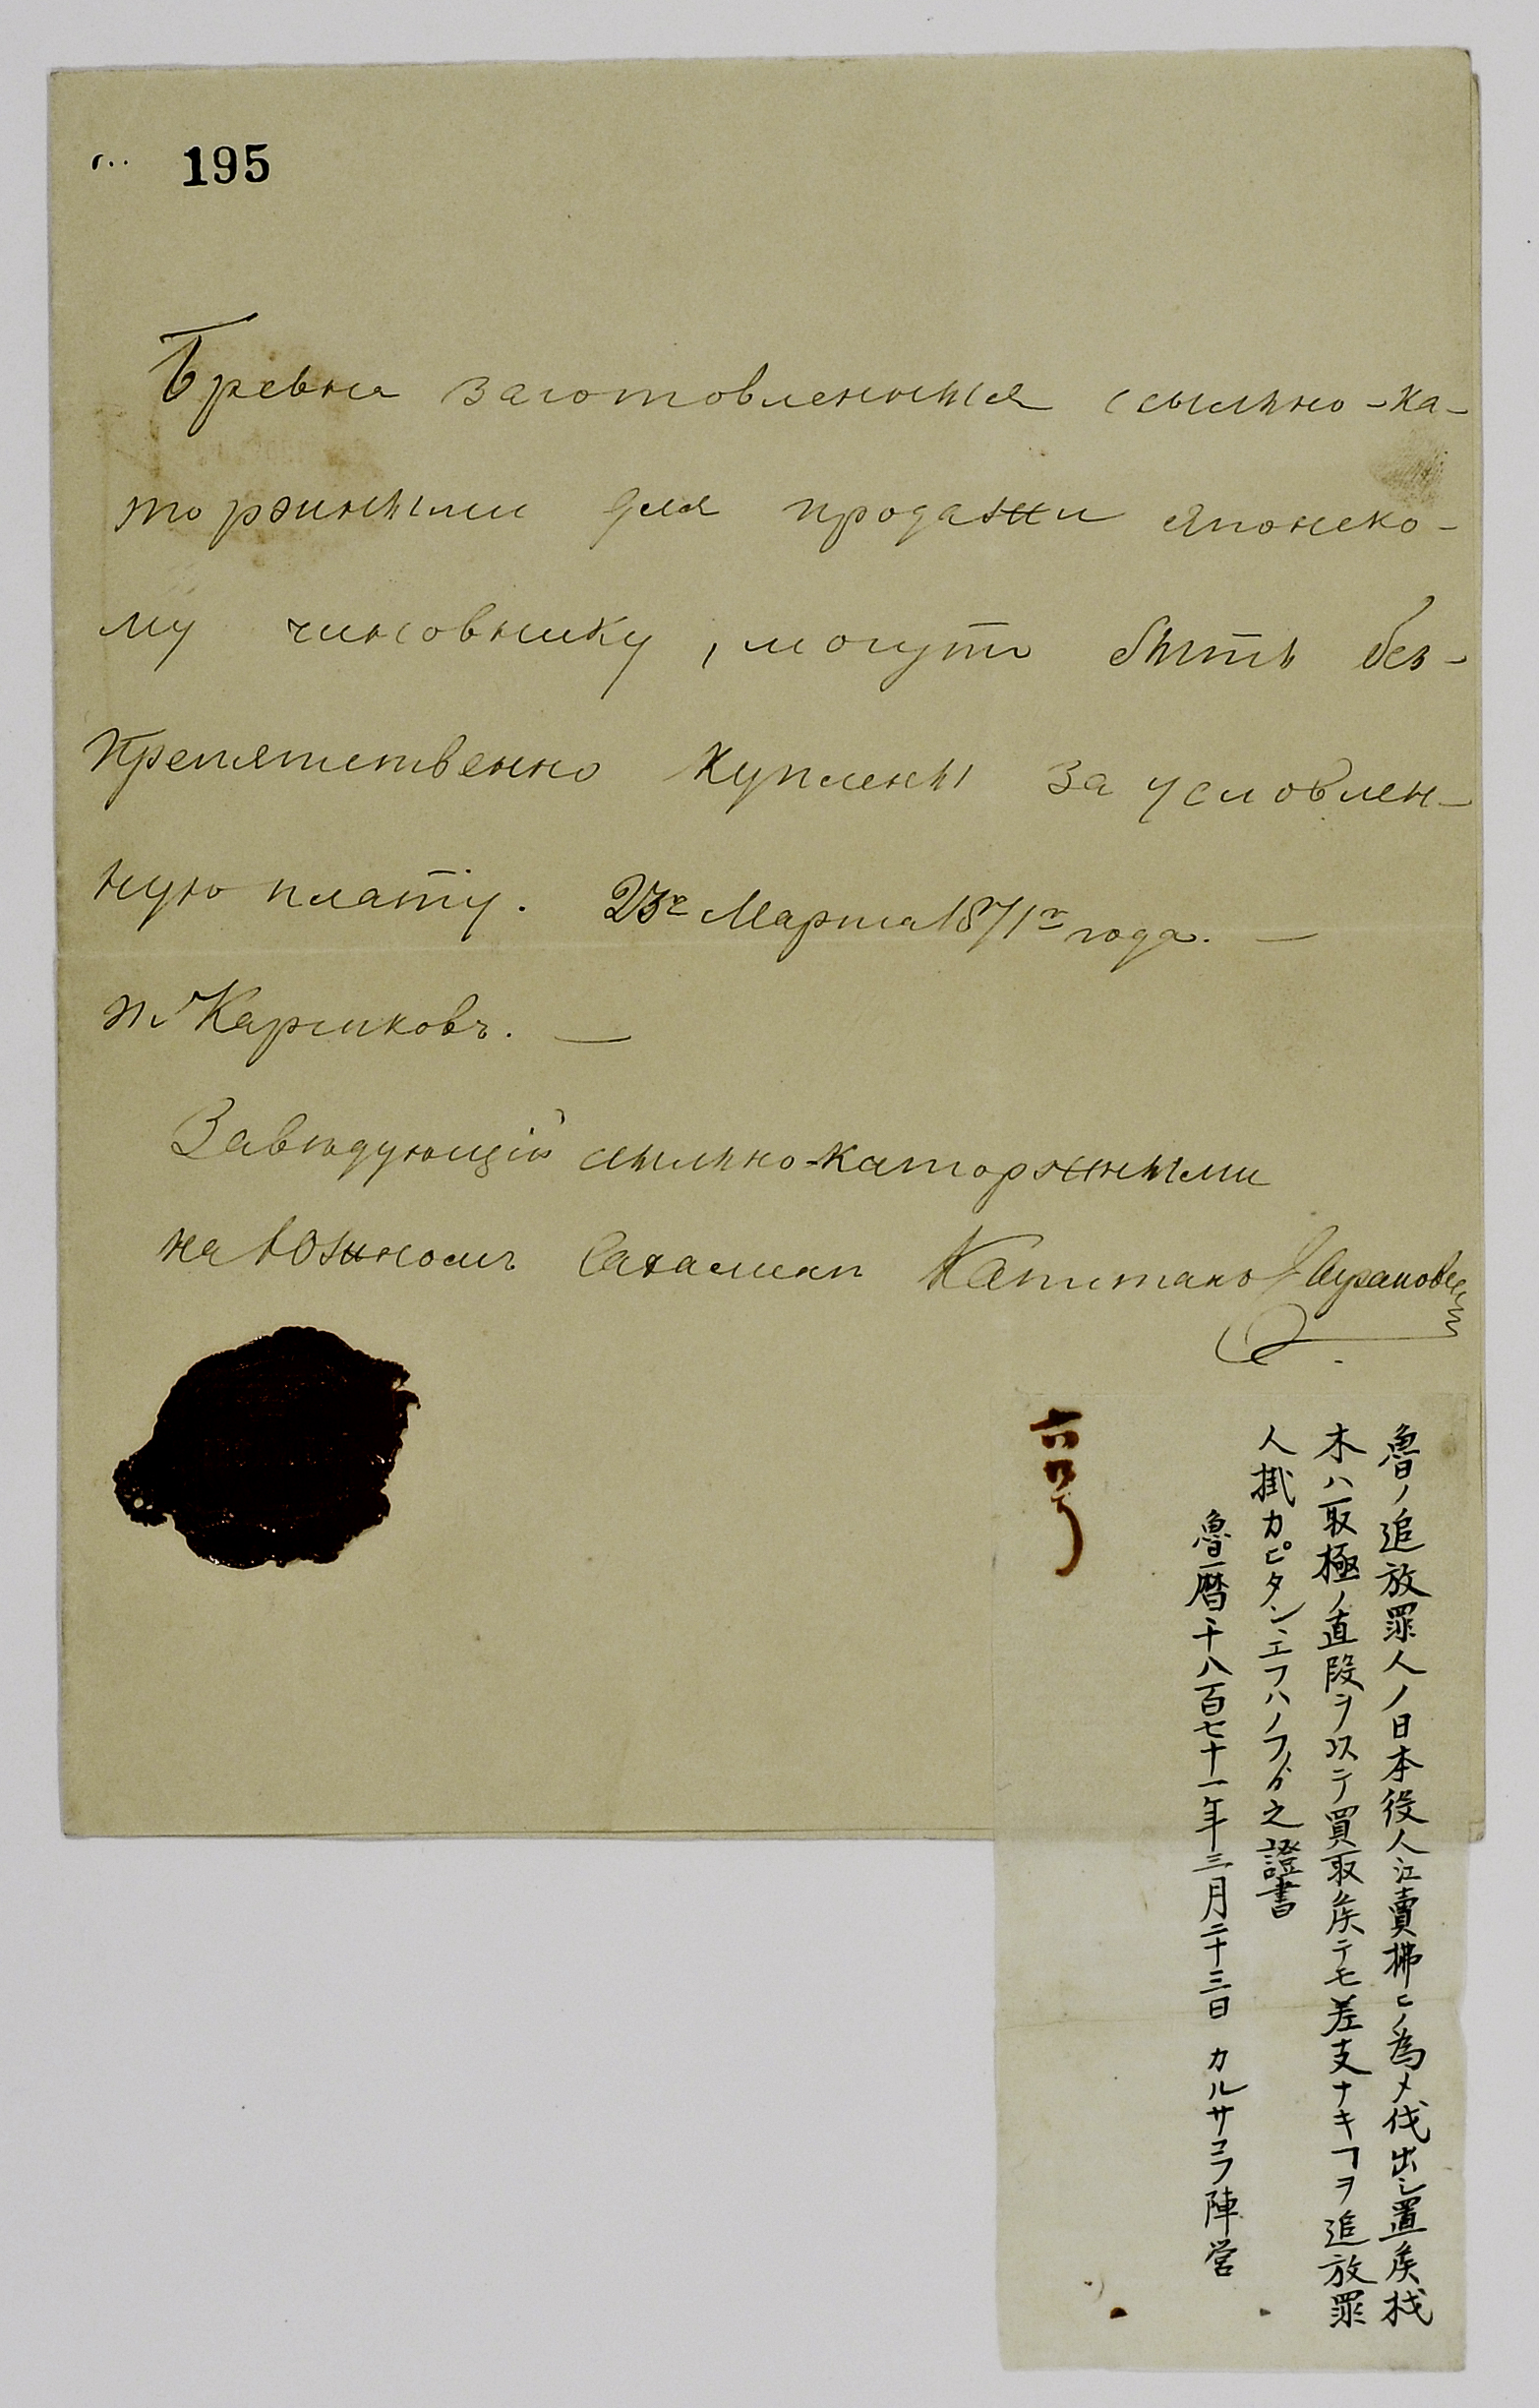 195
Бревна заготовленныя ссыльно-ка-
торжными для продажи японско-
му чиновнику, могутъ быть без-
препятственно куплены за условлен-
ную плату. 23го Марта 1871го года. —
Завѣдующій ссыльно-каторжными
на Южномъ Сахалинѣ Капитанъ
魯ノ追放罪人ノ日本役人江賣拂ヒノ為メ伐出シ置矦材
木ハ取極ノ直段ヲ以テ買取矦テモ差支ナキヿヲ追放罪
人掛カピタンエフハノフゟ之證書
魯暦千八百七十一年三月二十三日 カルサコフ陣営
六号